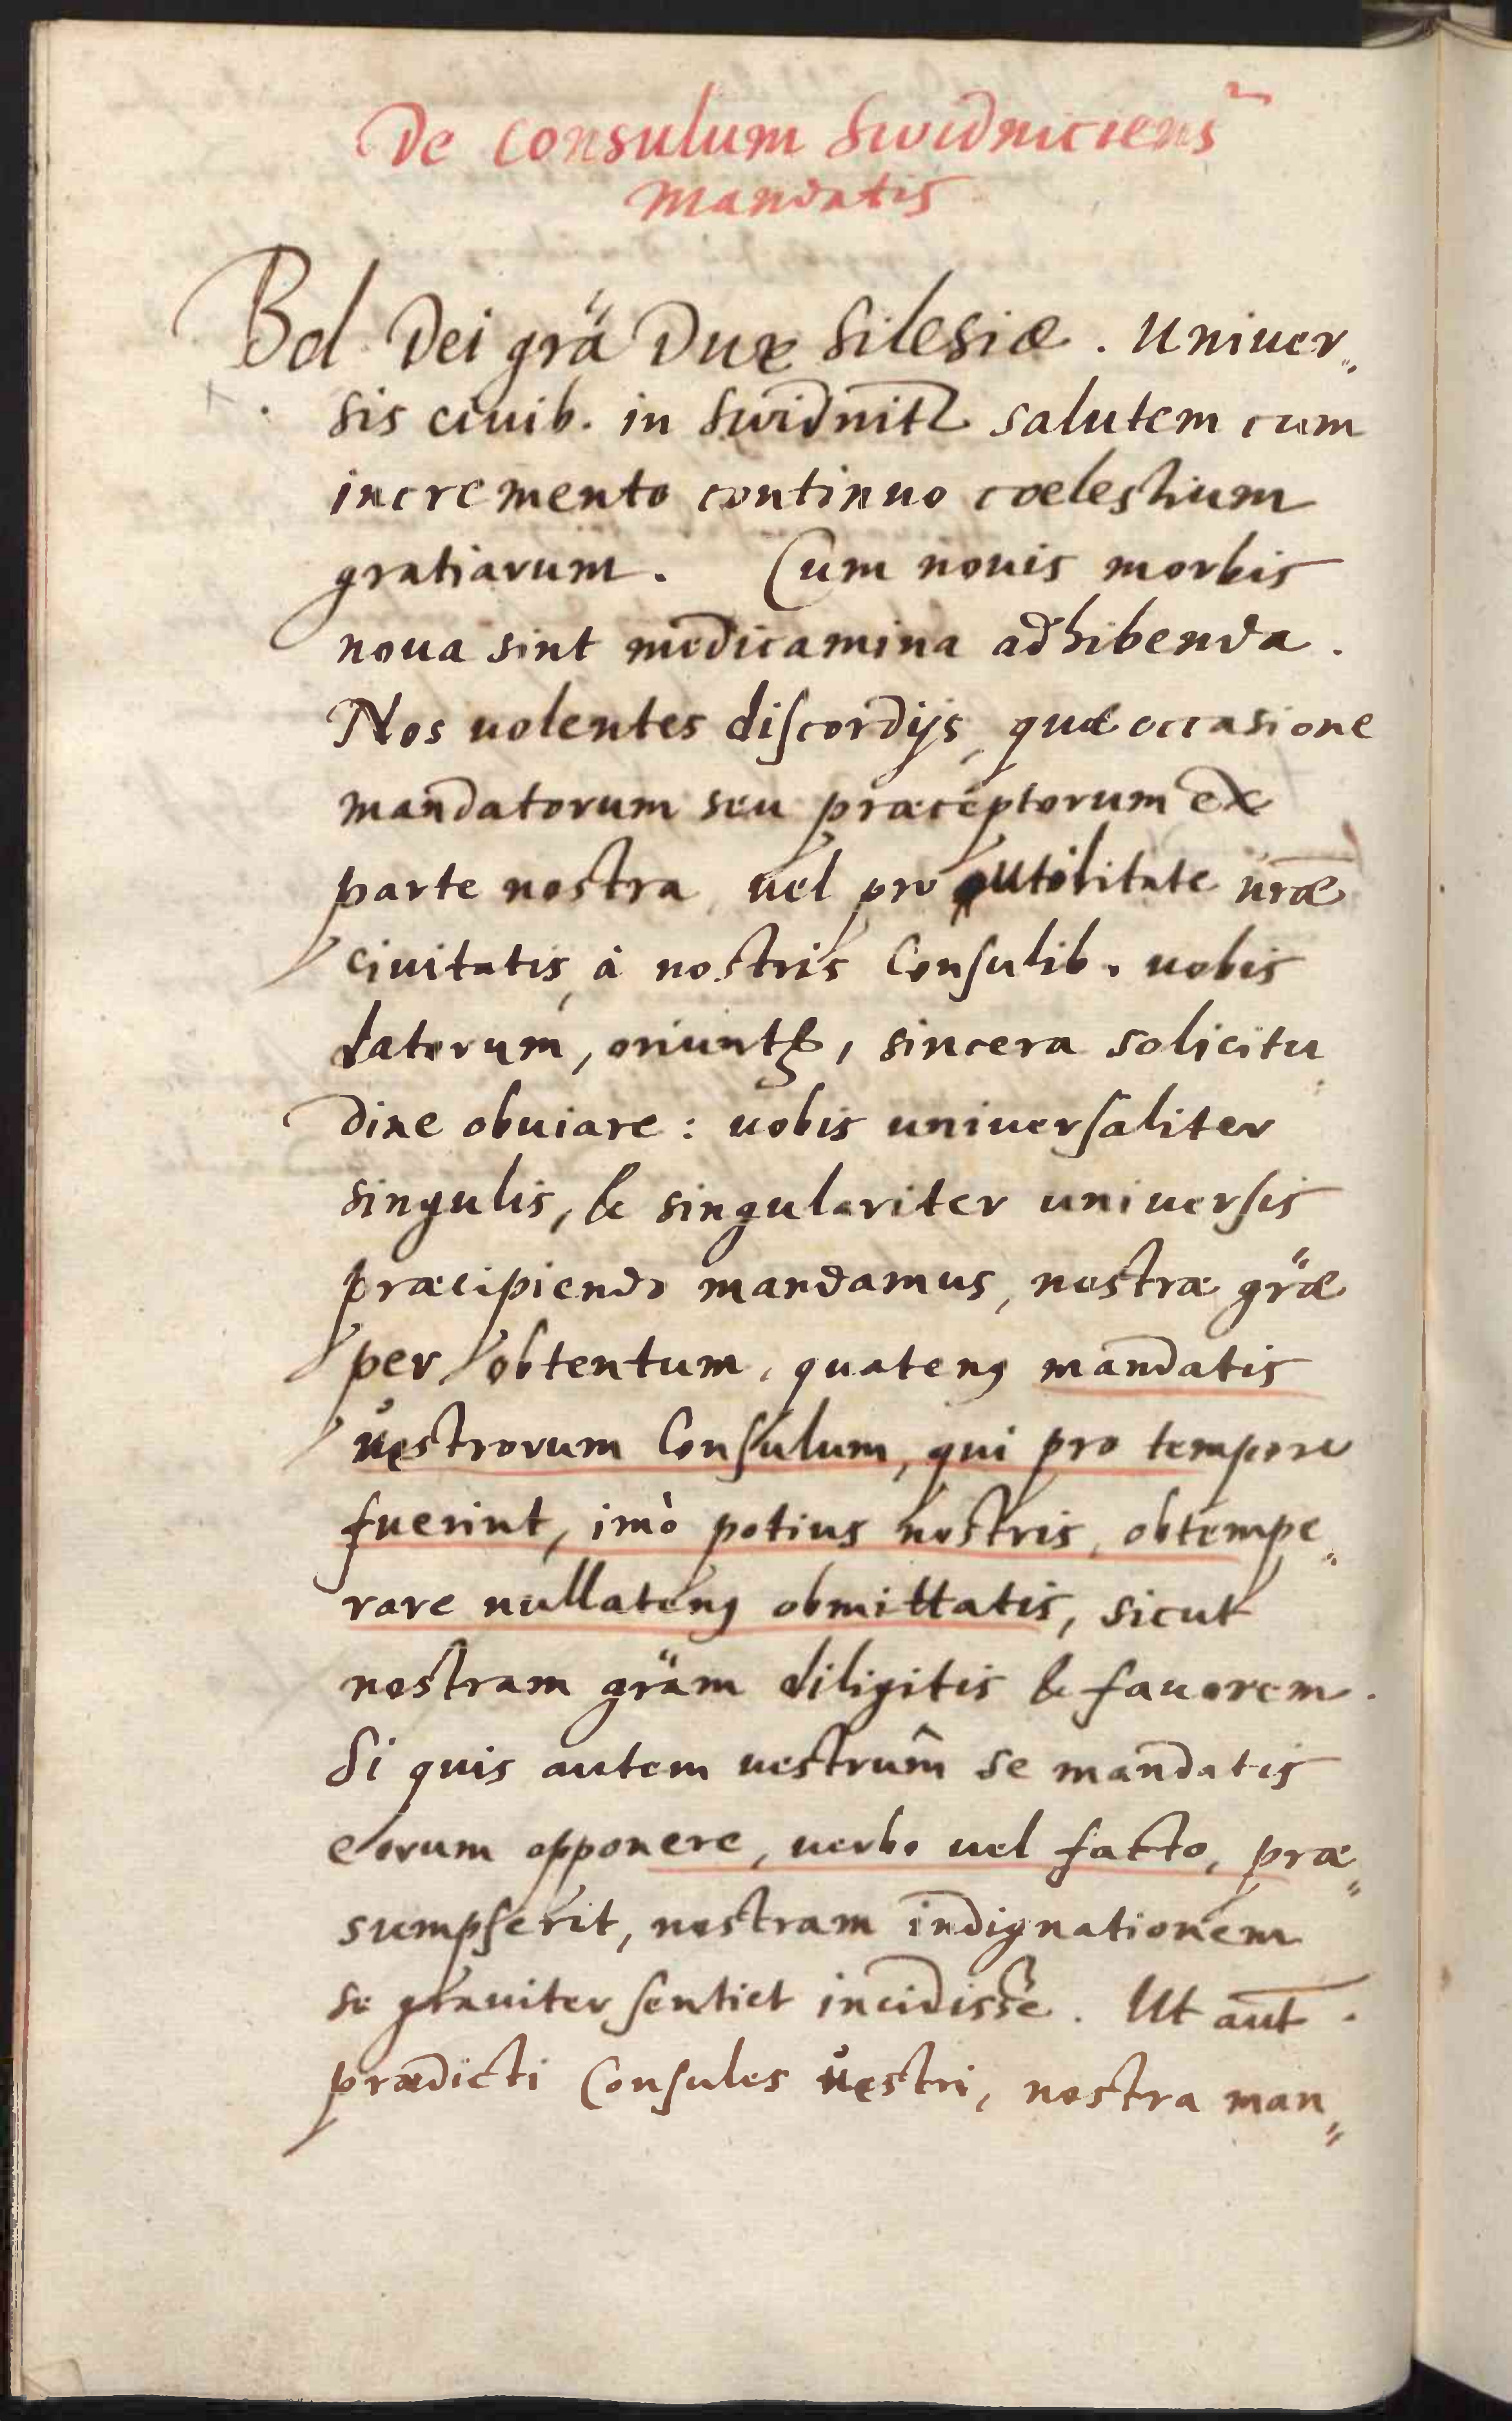 De Consulum Swidniciens̃
mandatis
Bol Dei grã Dux Silesiæ. Univer„
sis civib. in Swidnitz salutem cum
incremento continuo cœlestium
gratiarum. Cum nouis morbis
noua sint medicamina adhibenda.
Nos uolentes discordijs, quæ occasione
mandatorum seu præceptorum ex
parte nostra, uel pro utilitate ũræ
ciuitatis, à nostris Consulib. uobis
datorum, oriuntꝝ, sincera solicitu„
dine obuiare: uobis uniuersaliter
singulis, & singulariter uniuersis
præcipiendo mandamus, nostræ grãe
per obtentum, quatenꝰ mandatis
uestrorum Consulum, qui pro tempore
fuerint, imò potius nostris, obtempe„
rare nullatenꝰ obmittatis, sicut
nostram grãm diligitis & fauorem.
Si quis autem uestrum̂ se mandatis
eorum opponere, uerbo uel facto, præ„
sumpserit, nostram indignationem
se grauiter sentiet incidisse. Ut aut̃.
prædicti Consules uestri, nostra man„